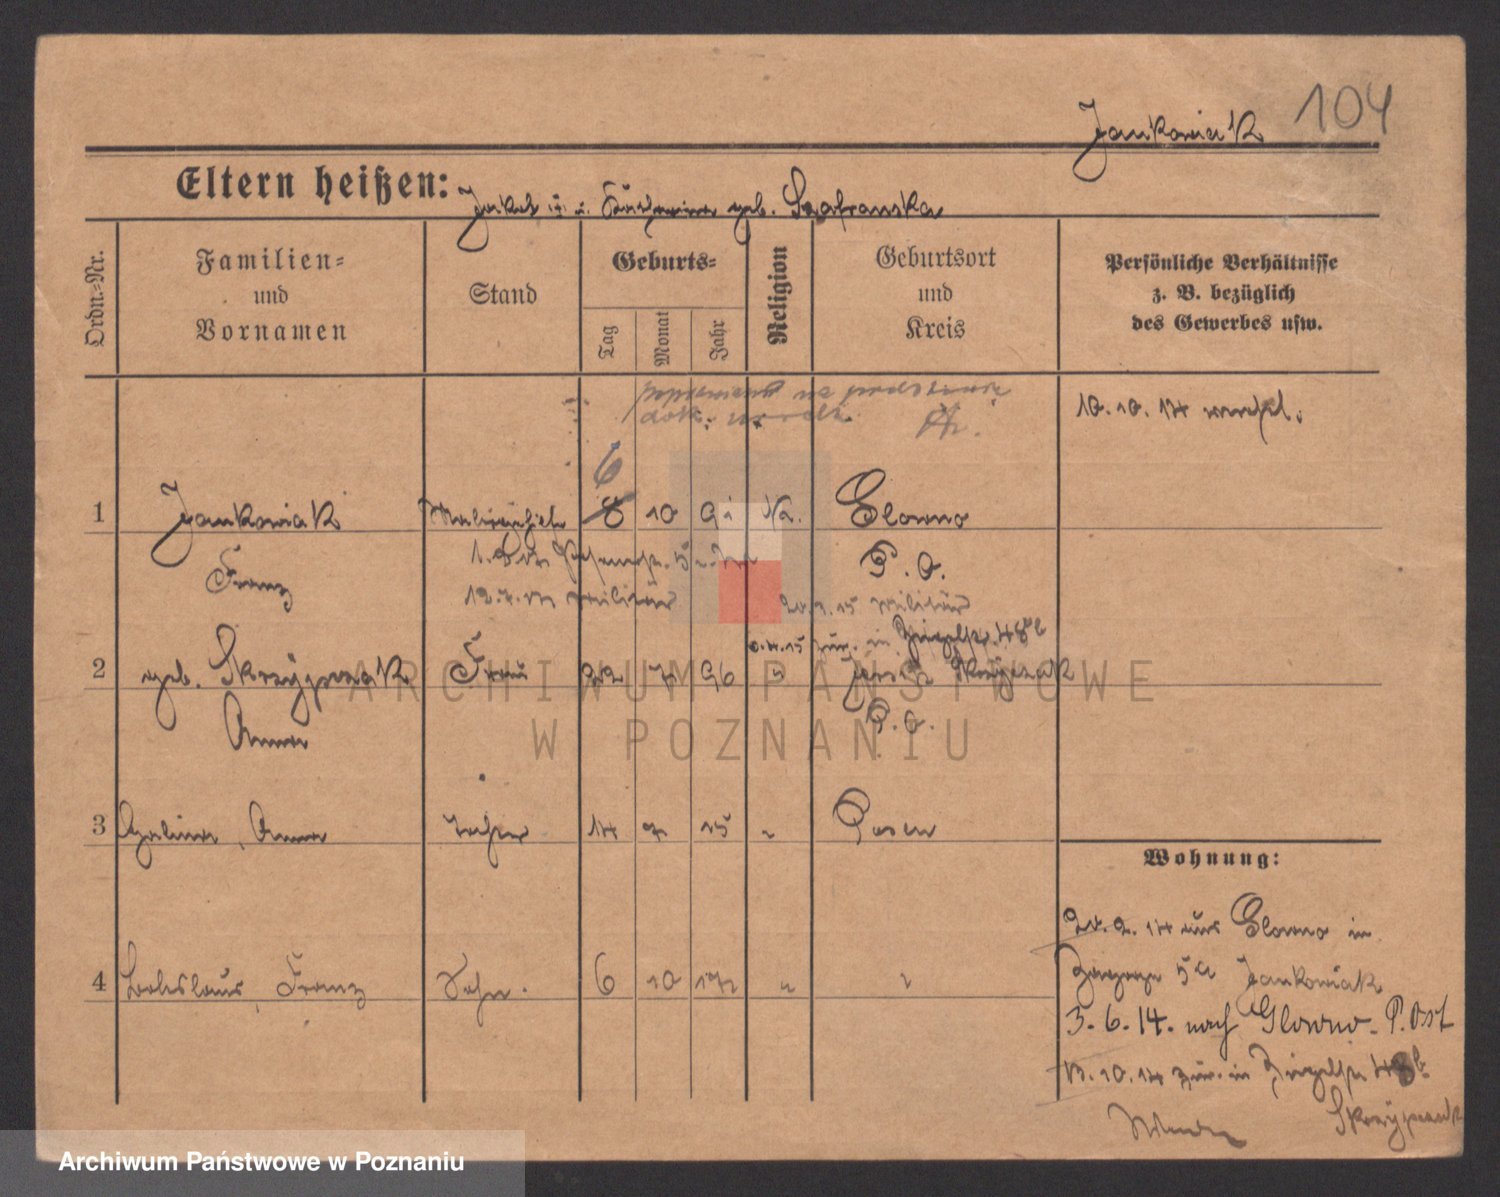 104
Jankowiak
Eltern heißen: Jakob u. Katharina geb. Szafranska
Ordn.-Nr.
Familien-
und
Vornamen
Stand
Geburts-
Tag
Monat
Jahr
Religion
Geburtsort
und
Kreis
Persönliche Verhältnisse
z. B. bezüglich
des Gewerbes usw.
na podstawie
dok.
10. 10. 14
6
1 Jankowiak 8 10 91 Ka. Glowno
Franz
P. O.
Militär
Militär
2 geb. Skrzypczak Frau 22 7 96 " Skrzypczak
Anna P. O.
3 Halina, Anna Tochter 14 7 15 " Posen
4 Boleslaus, Franz Sohn. 6 10 "
Wohnung:
20. 2. 14 aus Glowno in
5a Jankowiak
3. 6. 14. nach Glowno P. Ost
10. 14 zur. in 48b
Skrzypczak
ARCHIWUM PAŃSTWOWE
W POZNANIU
Archiwum Państwowe w Poznaniu